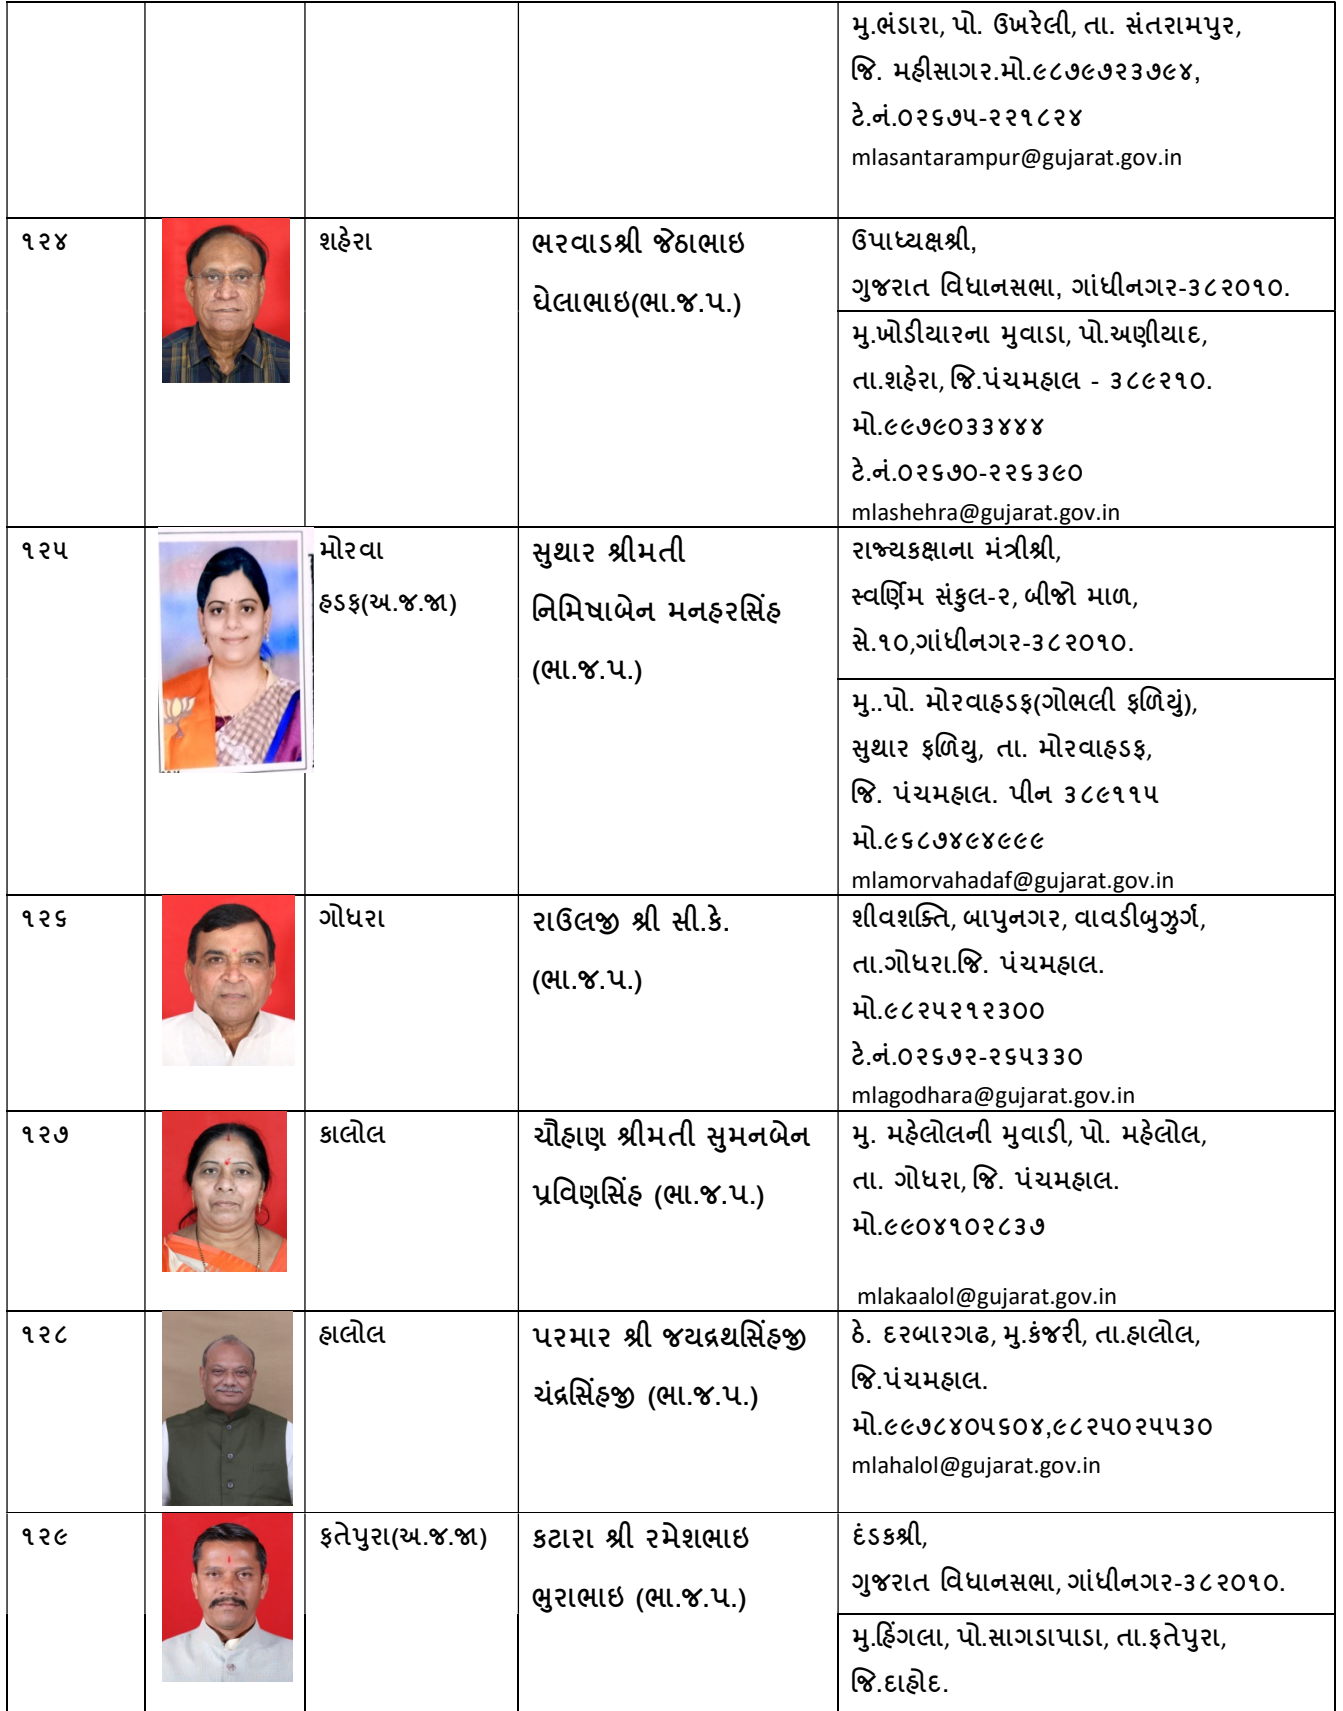 મુ.ભંડારા, પો. ઉખરેલી, તા. સંતરામપુર,
જિ. મહીસાગર.મો.૯૮૭૯૭૨૩૭૯૪,
ટે.નં.૦૨૬૭૫-૨૨૧૮૨૪
mlasantarampur@gujarat.gov.in
૧૨૪
શહેરા
ભરવાડશ્રી જેઠાભાઇ
ઘેલાભાઇ(ભા.જ.પ.)
ઉપાધ્યક્ષશ્રી,
ગુજરાત વિધાનસભા, ગાંધીનગર-૩૮૨૦૧૦.
મુ.ખોડીયારના મુવાડા, પો.અણીયાદ,
તા.શહેરા, જિ.પંચમહાલ - ૩૮૯૨૧૦.
મો.૯૯૭૯૦૩૩૪૪૪
ટે.નં.૦૨૬૭૦-૨૨૬૩૯૦
mlashehra@gujarat.gov.in
૧૨૫
મોરવા
હડફ(અ.જ.જા)
સુથાર શ્રીમતી
નિમિષાબેન મનહરસિંહ
(ભા.જ.પ.)
રાજ્યકક્ષાના મંત્રીશ્રી,
સ્વર્ણિમ સંકુલ-૨, બીજો માળ,
સે.૧૦,ગાંધીનગર-૩૮૨૦૧૦.
મુ..પો. મોરવાહડફ(ગોભલી ફળિયું),
સુથાર ફળિયુ, તા. મોરવાહડફ,
જિ. પંચમહાલ. પીન ૩૮૯૧૧૫
મો.૯૬૮૭૪૯૪૯૯૯
mlamorvahadaf@gujarat.gov.in
૧૨૬
ગોધરા
રાઉલજી શ્રી સી.કે.
(ભા.જ.પ.)
શીવશક્તિ, બાપુનગર, વાવડીબુઝુર્ગ,
તા.ગોધરા.જિ. પંચમહાલ.
મો.૯૮૨૫૨૧૨૩૦૦
ટે.નં.૦૨૬૭૨-૨૬૫૩૩૦
mlagodhara@gujarat.gov.in
૧૨૭
કાલોલ
ચૌહાણ શ્રીમતી સુમનબેન
પ્રવિણસિંહ (ભા.જ.પ.)
મુ. મહેલોલની મુવાડી, પો. મહેલોલ,
તા. ગોધરા, જિ. પંચમહાલ.
મો.૯૯૦૪૧૦૨૮૩૭
mlakaalol@gujarat.gov.in
૧૨૮
હાલોલ
પરમાર શ્રી જયદ્રથસિંહજી
ચંદ્રસિંહજી (ભા.જ.પ.)
ઠે. દરબારગઢ, મુ.કંજરી, તા.હાલોલ,
જિ.પંચમહાલ.
મો.૯૯૭૮૪૦૫૬૦૪,૯૮૨૫૦૨૫૫૩૦
mlahalol@gujarat.gov.in
૧૨૯
ફતેપુરા(અ.જ.જા)
કટારા શ્રી રમેશભાઇ
ભુરાભાઇ (ભા.જ.પ.)
દંડકશ્રી,
ગુજરાત વિધાનસભા, ગાંધીનગર-૩૮૨૦૧૦.
મુ.હિંગલા, પો.સાગડાપાડા, તા.ફતેપુરા,
જિ.દાહોદ.